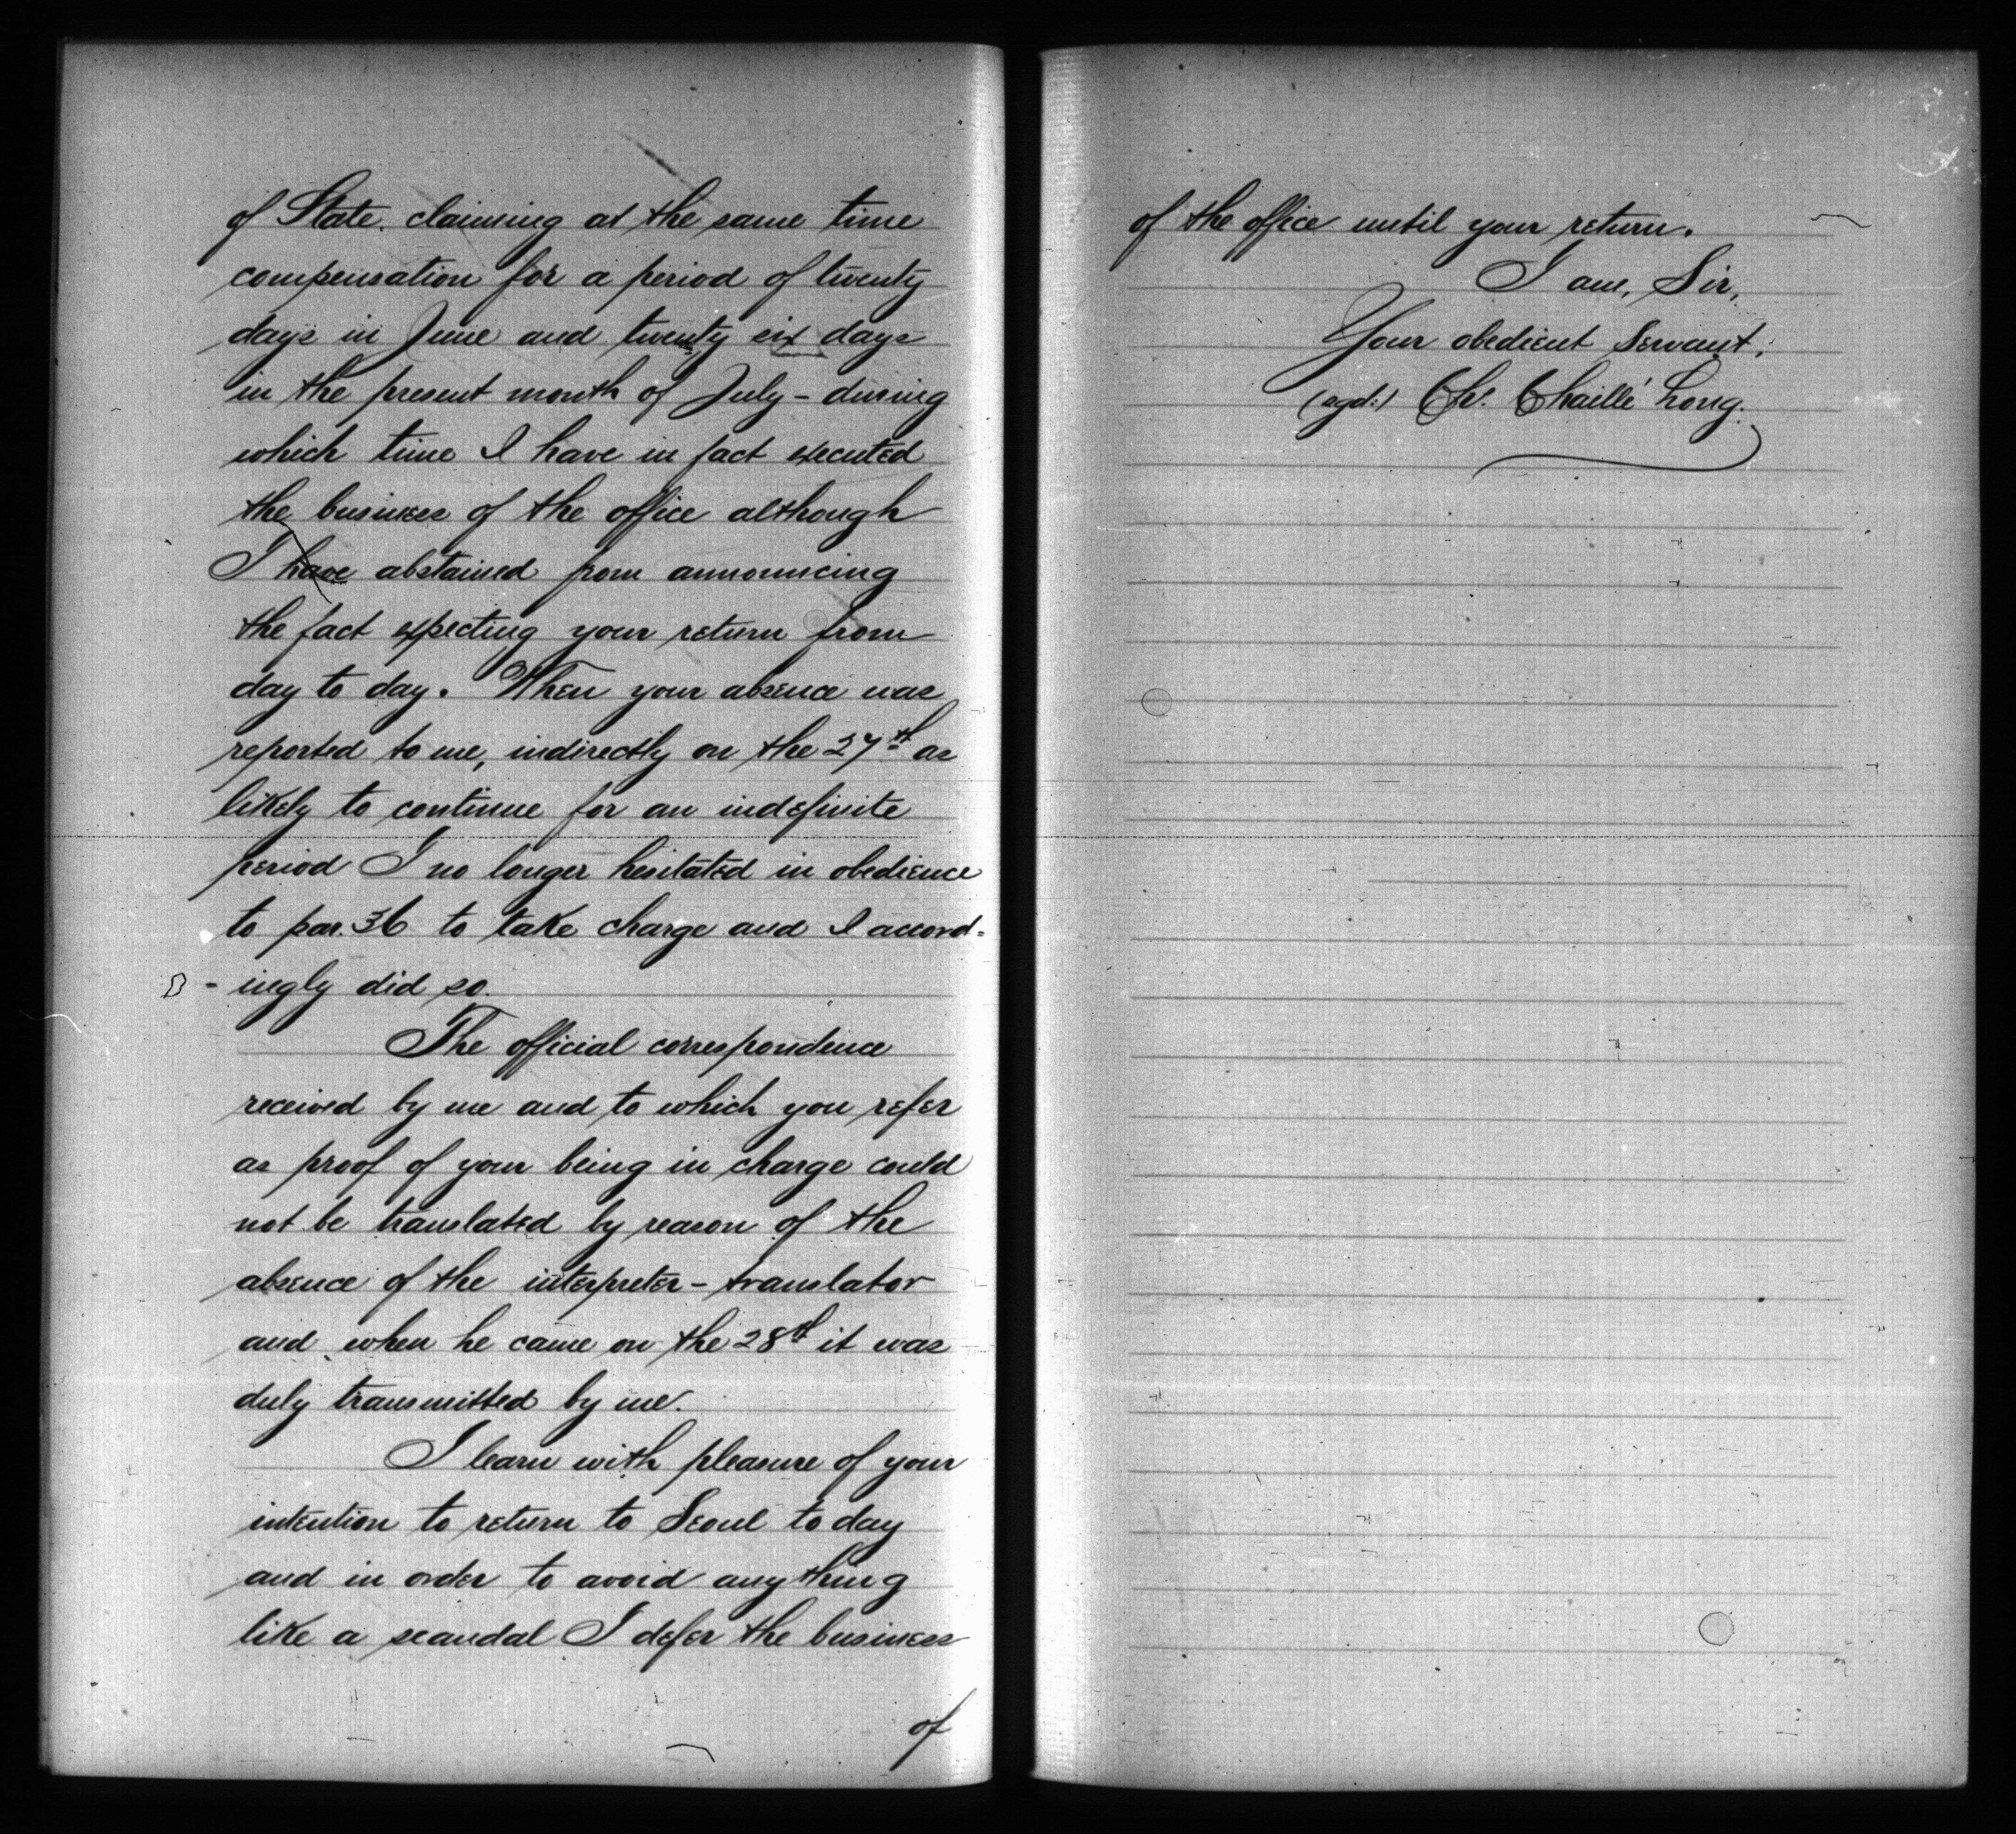 of State. claiming at the same time
compensation for a period of twenty
days in June and twenty six days
in the present month of July - during
which time I have in fact executed
the business of the office although
I have abstained from announcing
the fact expecting your return from
day to day. When your absence was
reported to me, indirectly on the 27th as
likely to continue for an indefinite
period I no longer hesitated in obedience
to par. 36 to take charge and I accord-
-ingly did so.
The official correspondence
received by me and to which you refer
as proof of your being in charge could
not be translated by reason of the
absence of the interpreter - translator
and when he came on the 28th it was
duly transmitted by me.
I learn with pleasure of your
intention to return to Seoul to day
and in order to avoid anything
like a scandal I defer the business
of
of the office until your return.
I am, Sir,
Your obedient Servant,
(sgd:) Ch. Chaillé Long.